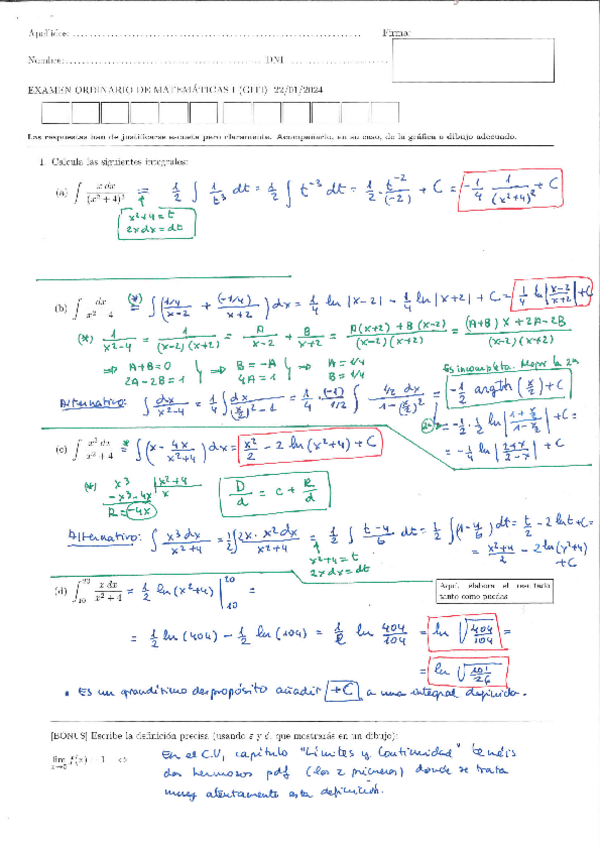 Apellidos: Firma:
Nombre: DNI
EXAMEN ORDINARIO DE MATEMÁTICAS I (GITI) 22/01/2024
Las respuestas han de justificarse escueta pero claramente. Acompañarlo, en su caso, de la gráfica o dibujo adecuado.
1. Calcula las siguientes integrales:
(a) ∫ x dx/(x²+4)³ = 1/2 ∫ 1/t³ dt = 1/2 ∫ t⁻³ dt = 1/2 · t⁻²/(-2) + C = -1/4 1/(x²+4)² + C
x²+4 = t
2x dx = dt
(b) ∫ dx/(x²-4) (*)= ∫ ((1/4)/(x-2) + (-1/4)/(x+2)) dx = 1/4 ln|x-2| - 1/4 ln|x+2| + C = 1/4 ln|(x-2)/(x+2)| + C
(*) 1/(x²-4) = 1/((x-2)(x+2)) = A/(x-2) + B/(x+2) = (A(x+2) + B(x-2))/((x-2)(x+2)) = ((A+B)x + 2A-2B)/((x-2)(x+2))
⇒ A+B=0 ⇒ B=-A ⇒ A=1/4
2A-2B=1 4A=1 B=1/4
Es incompleta. Mejor la 2ª
Alternativo: ∫ dx/(x²-4) = 1/4 ∫ dx/((x/2)²-1) = 1/4 · (-1)/(1/2) ∫ (1/2 dx)/(1-(x/2)²) = -1/2 argth(x/2) + C
2ª = -1/2 · 1/2 ln|(1+x/2)/(1-x/2)| + C =
= -1/4 ln|(2+x)/(2-x)| + C
(c) ∫ x³ dx/(x²+4) *= ∫ (x - 4x/(x²+4)) dx = x²/2 - 2 ln(x²+4) + C
(*) x³ |x²+4
-x³-4x x
R = -4x
D/d = c + R/d
Alternativo: ∫ x³dx/(x²+4) = 1/2 ∫ 2x·x²dx/(x²+4) = 1/2 ∫ (t-4)/t dt = 1/2 ∫ (1-4/t) dt = t/2 - 2 ln t + C =
x²+4 = t
2x dx = dt
= (x²+4)/2 - 2 ln(x²+4) + C
(d) ∫ x dx/(x²+4) = 1/2 ln(x²+4) |₁₀²⁰ =
Aquí, elabora el resultado
tanto como puedas
= 1/2 ln(404) - 1/2 ln(104) = 1/2 ln 404/104 = ln √(404/104) =
= ln √(101/26)
• Es un grandísimo despropósito añadir +C a una integral definida.
[BONUS] Escribe la definición precisa (usando ε y δ, que mostrarás en un dibujo):
En el C.V, capítulo "Límites y Continuidad" tenéis
dos hermosos pdf (los 2 primeros) donde se trata
muy atentamente esta definición.